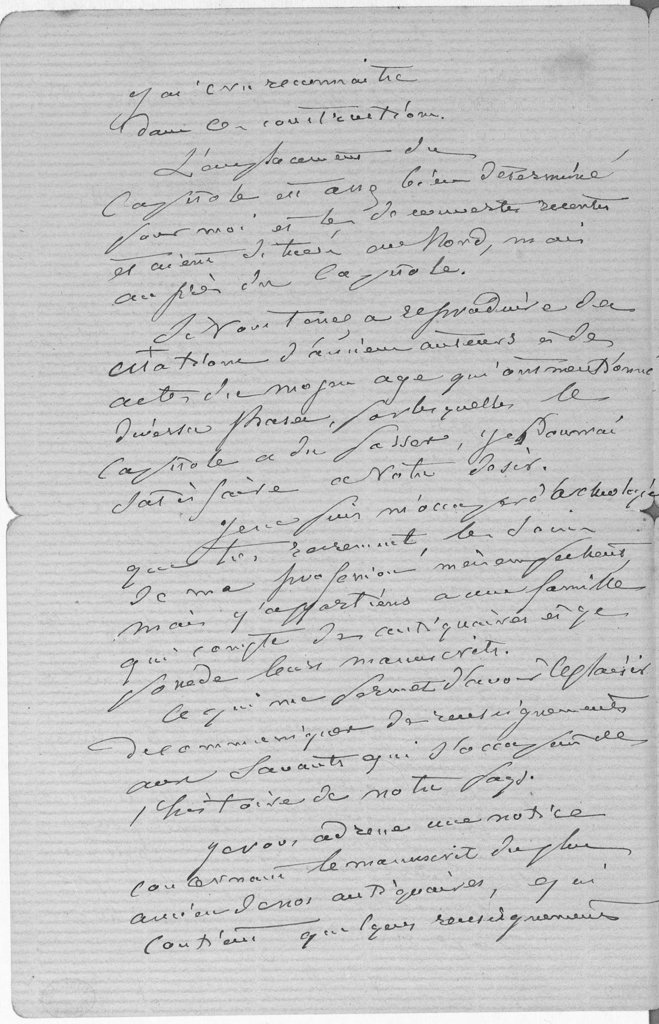 j'ai cru reconnaitre
dans ces constructions.
L'emplacement du
Capitole est assez bien déterminé
pour moi et les découvertes recentes
et aient située au Nord, mais
auprès du Capitole.
Si Vous tenez a reproduire des
citations d'anciens auteurs et des
actes du moyen age qui ont mentionné
diverses phases, par lesquelles le
Capitole a du passer, je pourrai
satisfaire a Votre desir.
Je ne puis m'occuper d'archeologie
que très rarement les soins
de ma profession m'en empechent
mais j'appartiens a une famille
qui compte des antiquaires et je
possede leurs manuscrits.
Ce qui me permet d'avoir le plaisir
de communiquer des renseignements
aux Savants qui s'occupent de
l'histoire de notre pays.
Je vous adresse une notice
concernant le manuscrit du plus
ancien de nos antiquaires, qui
contient quelques renseignements